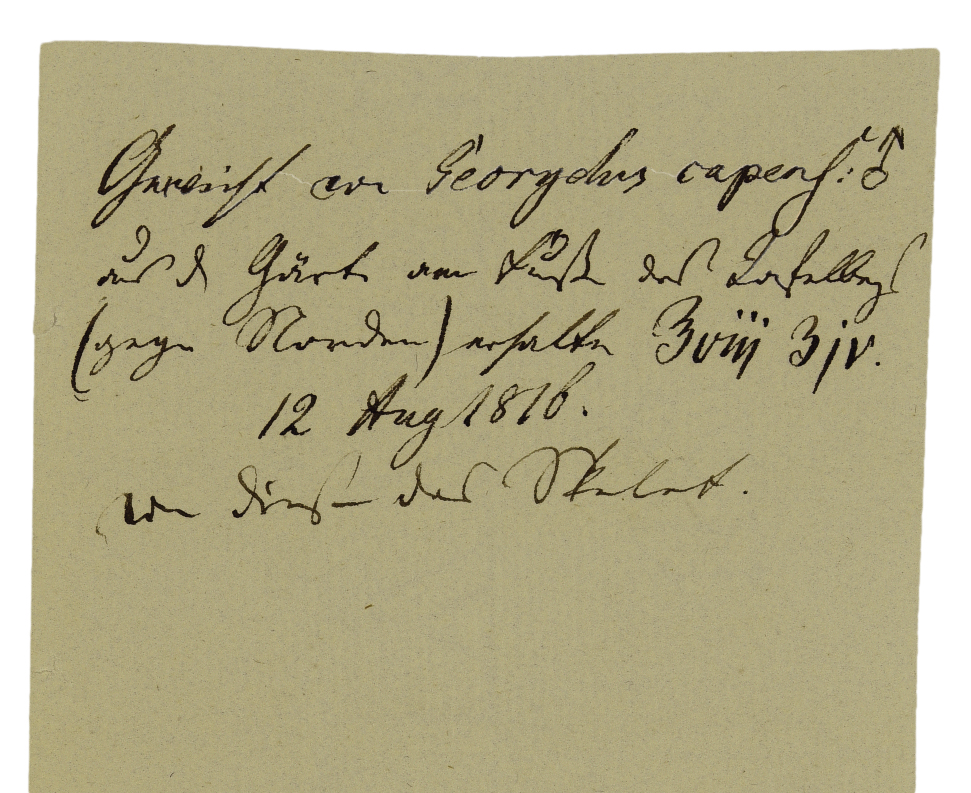 Gewicht von Georychus capens: ♂
aus d Gärte am Fuße des Tafelbergs
(gegen Norden) erhalten ℥viij ʒjv.
12 Aug 1816.
von diesem das Skelet.